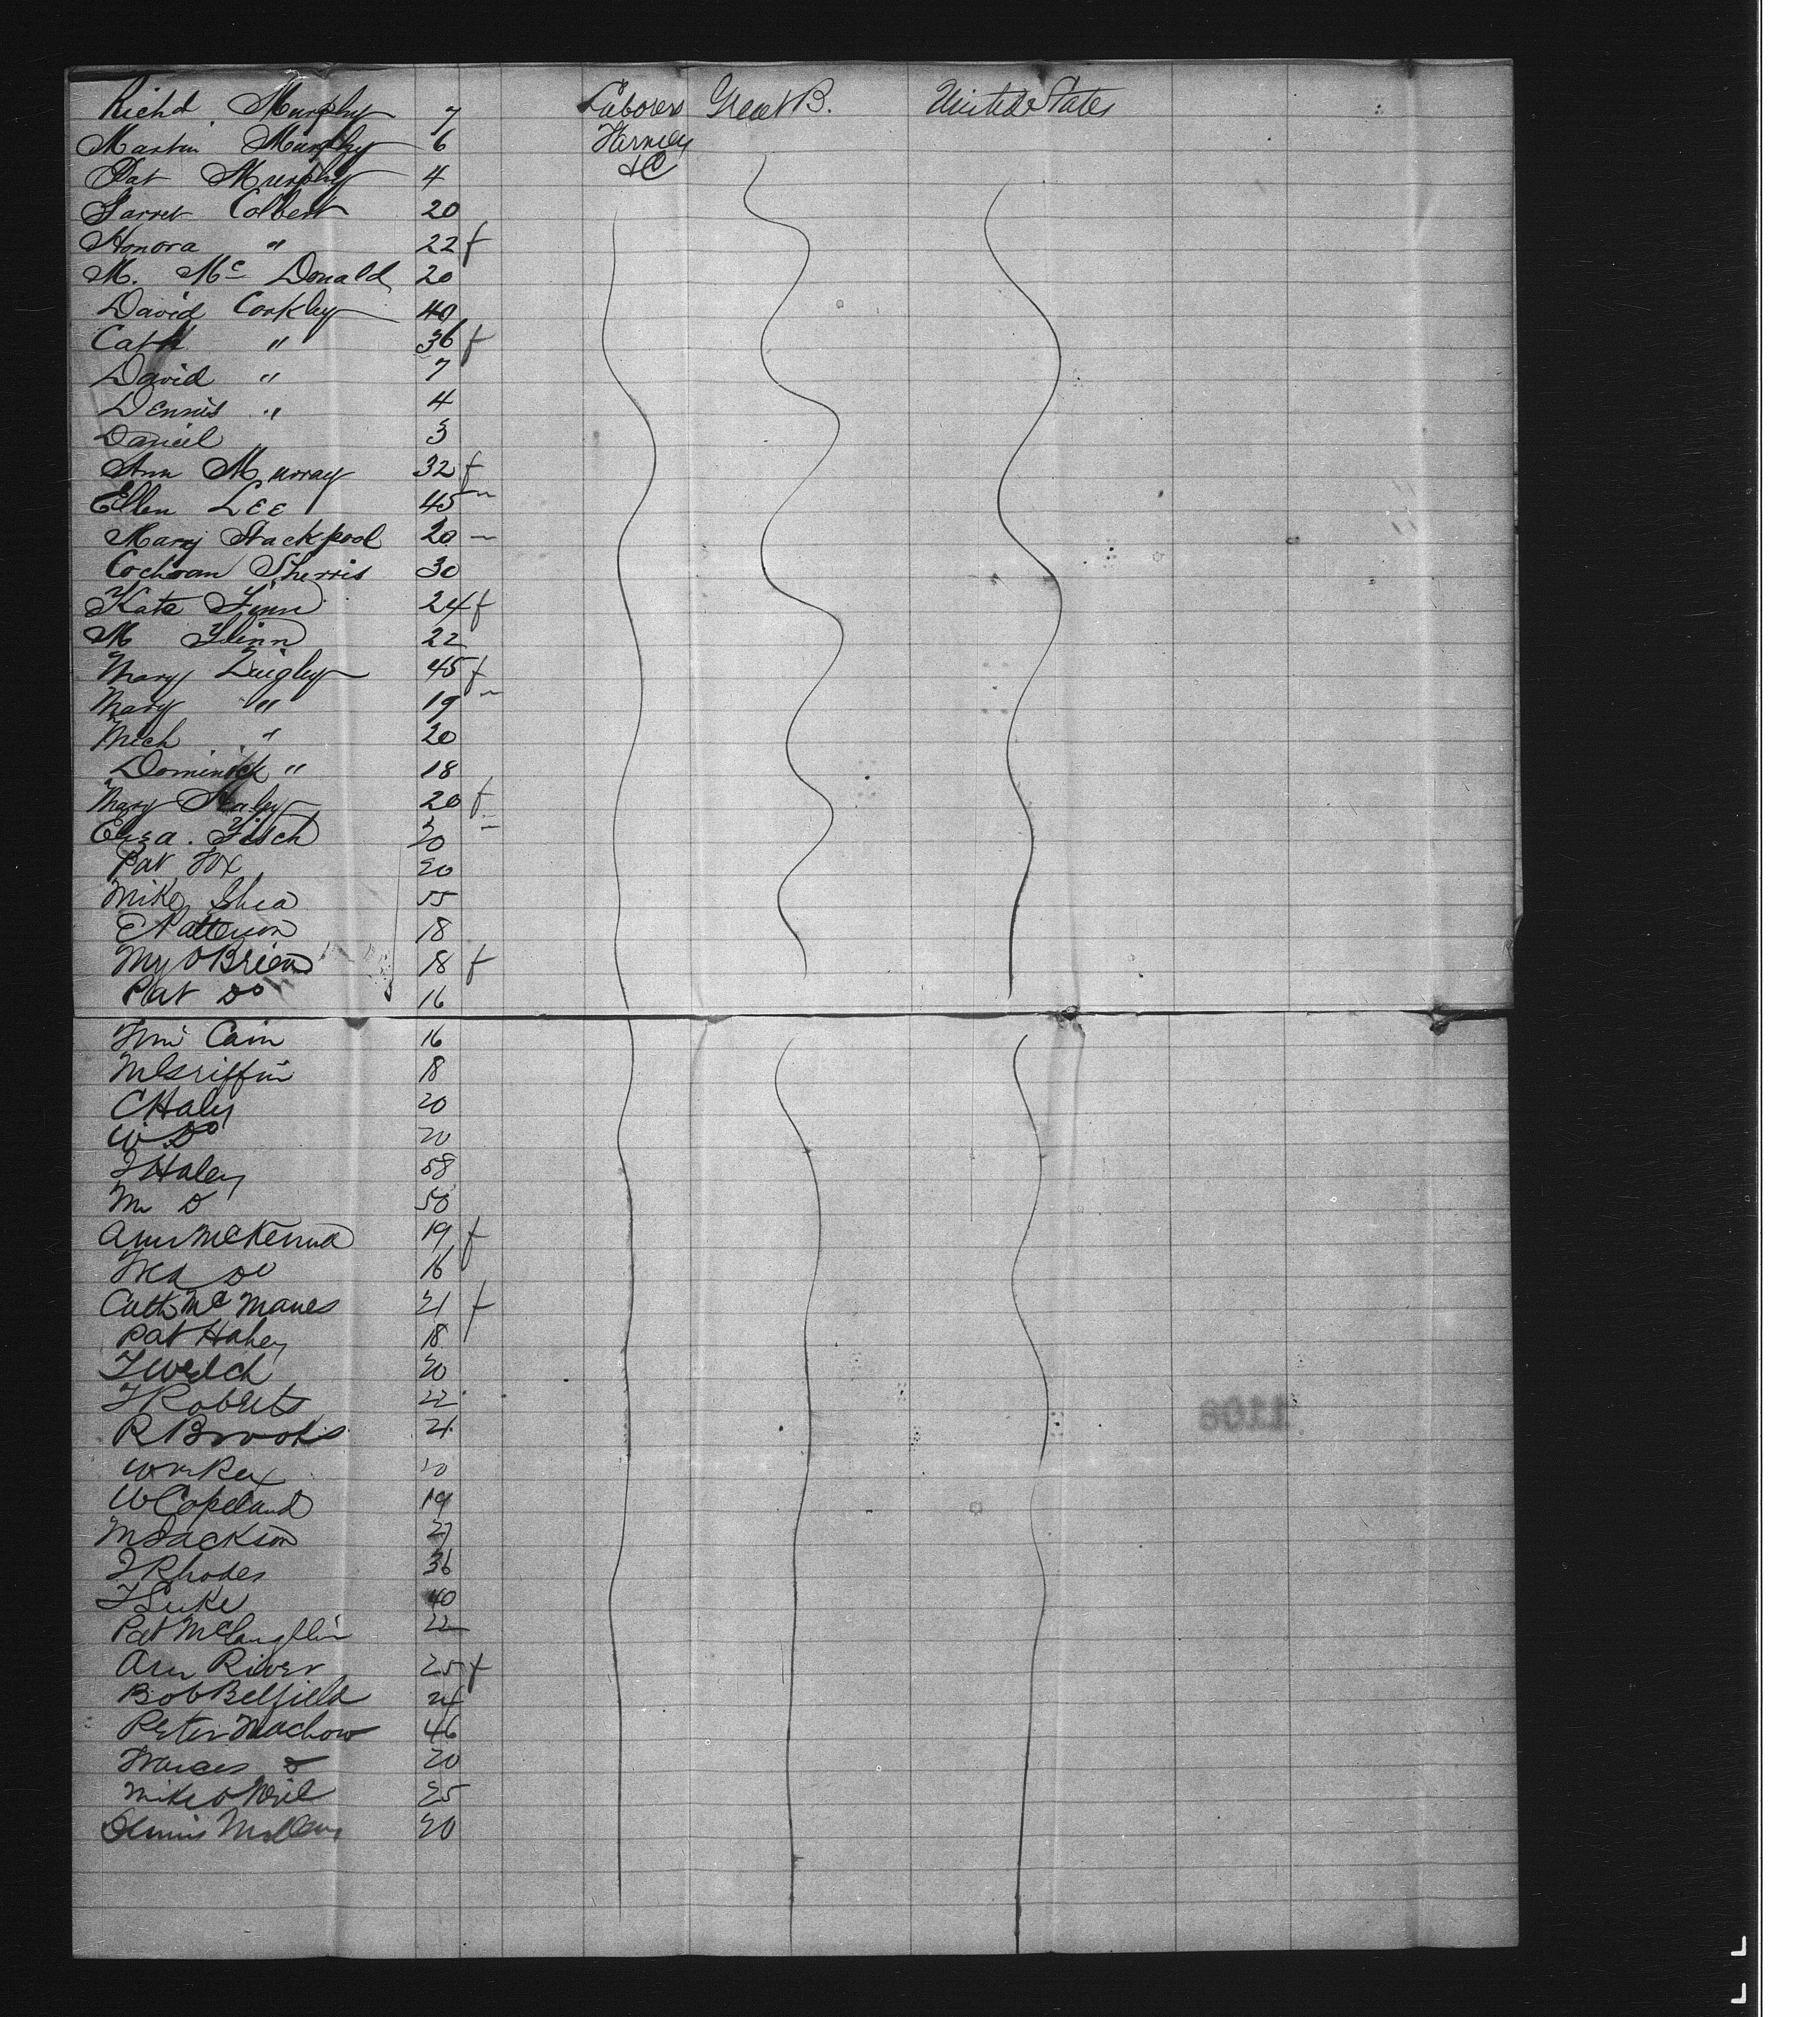 Richd. Murphy 7 Laborers Great B. United States
Martin Murphy 6 Farmers
Pat Murphy 4 &C
Garret Colbert 20
Honora " 22 f
M. Mc Donald 20
David Corkley 40
Cath " 36 f
David " 7
Dennis " 4
Daniel 3
Ann Murray 32 f
Ellen Lee 45 "
Mary Stackpool 20 -
Cochran Sherris 30
Kate Finn 24 f
M Flinn 22
Mary Quigley 45 f
Mary " 19 "
Mich " 20
Dominick " 18
Mary Haley 20 f
Eliza. Fitsch 20 "
Pat Fox 20
Mike Shea 55
E Patterson 18
My O Brien 18 f
Pat Do 16
Cain 16
M Griffin 18
C Haly 20
W Do 20
J Haley 58
M D 50
Ann McKenna 19 f
Do 16
Cath Mc Manes 21 f
Pat Haley 18
J Welch 20
J Roberts 22
R Brooks 21
Wm Rex 20
W Copeland 19
M Jackson 27
J Rhodes 36
J Luke 40
Pat McLaughlin 22
Ann River 25 f
Bob Belfield 24
Peter Machow 46
Frances Do 20
Mike O Neil 25
Dennis 20